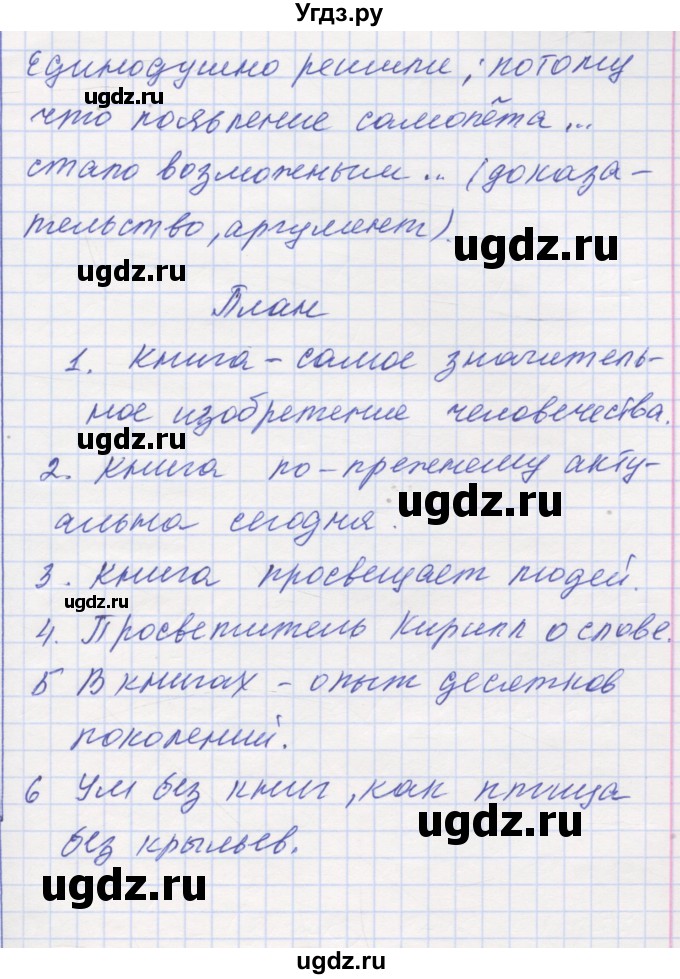 Угдз.ру
Единодушно решили; потому
ugdz.ru
что появление самолёта...
стало возможеным... (доказа-
тельство, аргумент).
ugdz.ru
ugdz.ru
План
1. Книга - самое значитель-
ное изобретение человечества.
ugdz.ru
2. Книга по-прежнему акту-
ugdz.ru
альна сегодня.
3. Книга просвещает людей.
ugdz.ru
4. Просветитель Кирилл о слове.
5 В книгах - опыт десятков
ugdz.ru
поколений.
6 Ум без книг, как птица
ugdz.ru
без крыльев.
ugdz.ru
ugdz.ru